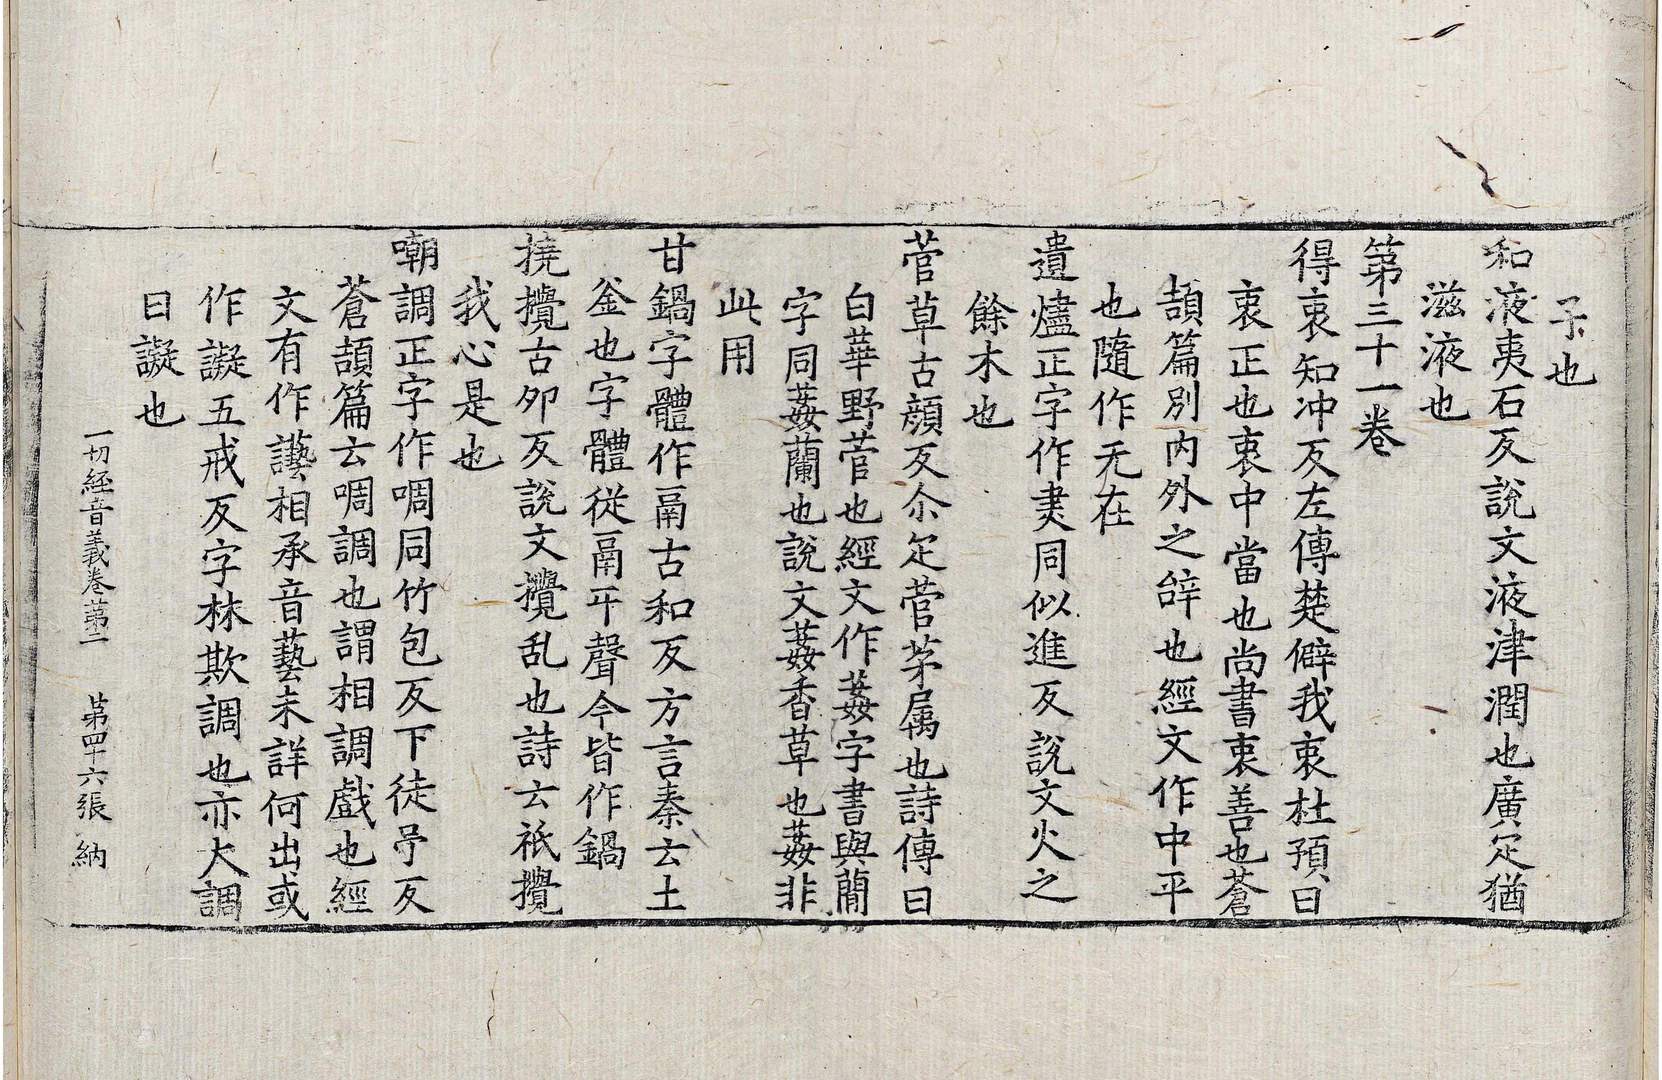 子也
和液夷石反說文液津潤也廣疋猶
滋液也
第三十一卷
得衷知冲反左傳楚僻我衷杜預曰
衷正也衷中當也尚書衷善也蒼
頡篇別內外之辝也經文作中平
也隨作无在
遺燼正字作㶳同似進反說文火之
餘木也
菅草古顏反尒疋菅茅属也詩傳曰
白華野菅也經文作葌字書與蕑
字同葌蘭也說文葌香草也葌非
此用
甘鍋字體作鬲古和反方言秦云土
釜也字體從鬲𠀒聲今皆作鍋
撓攪古卯反說文攪乱也詩云祇攪
我心是也
嘲調正字作啁同竹包反下徒弔反
蒼頡篇云啁調也謂相調戲也經
文有作讛相承音藝未詳何出或
作譺五戒反字林欺調也亦大調
曰譺也
一切經音義卷第二 第四十六張 納